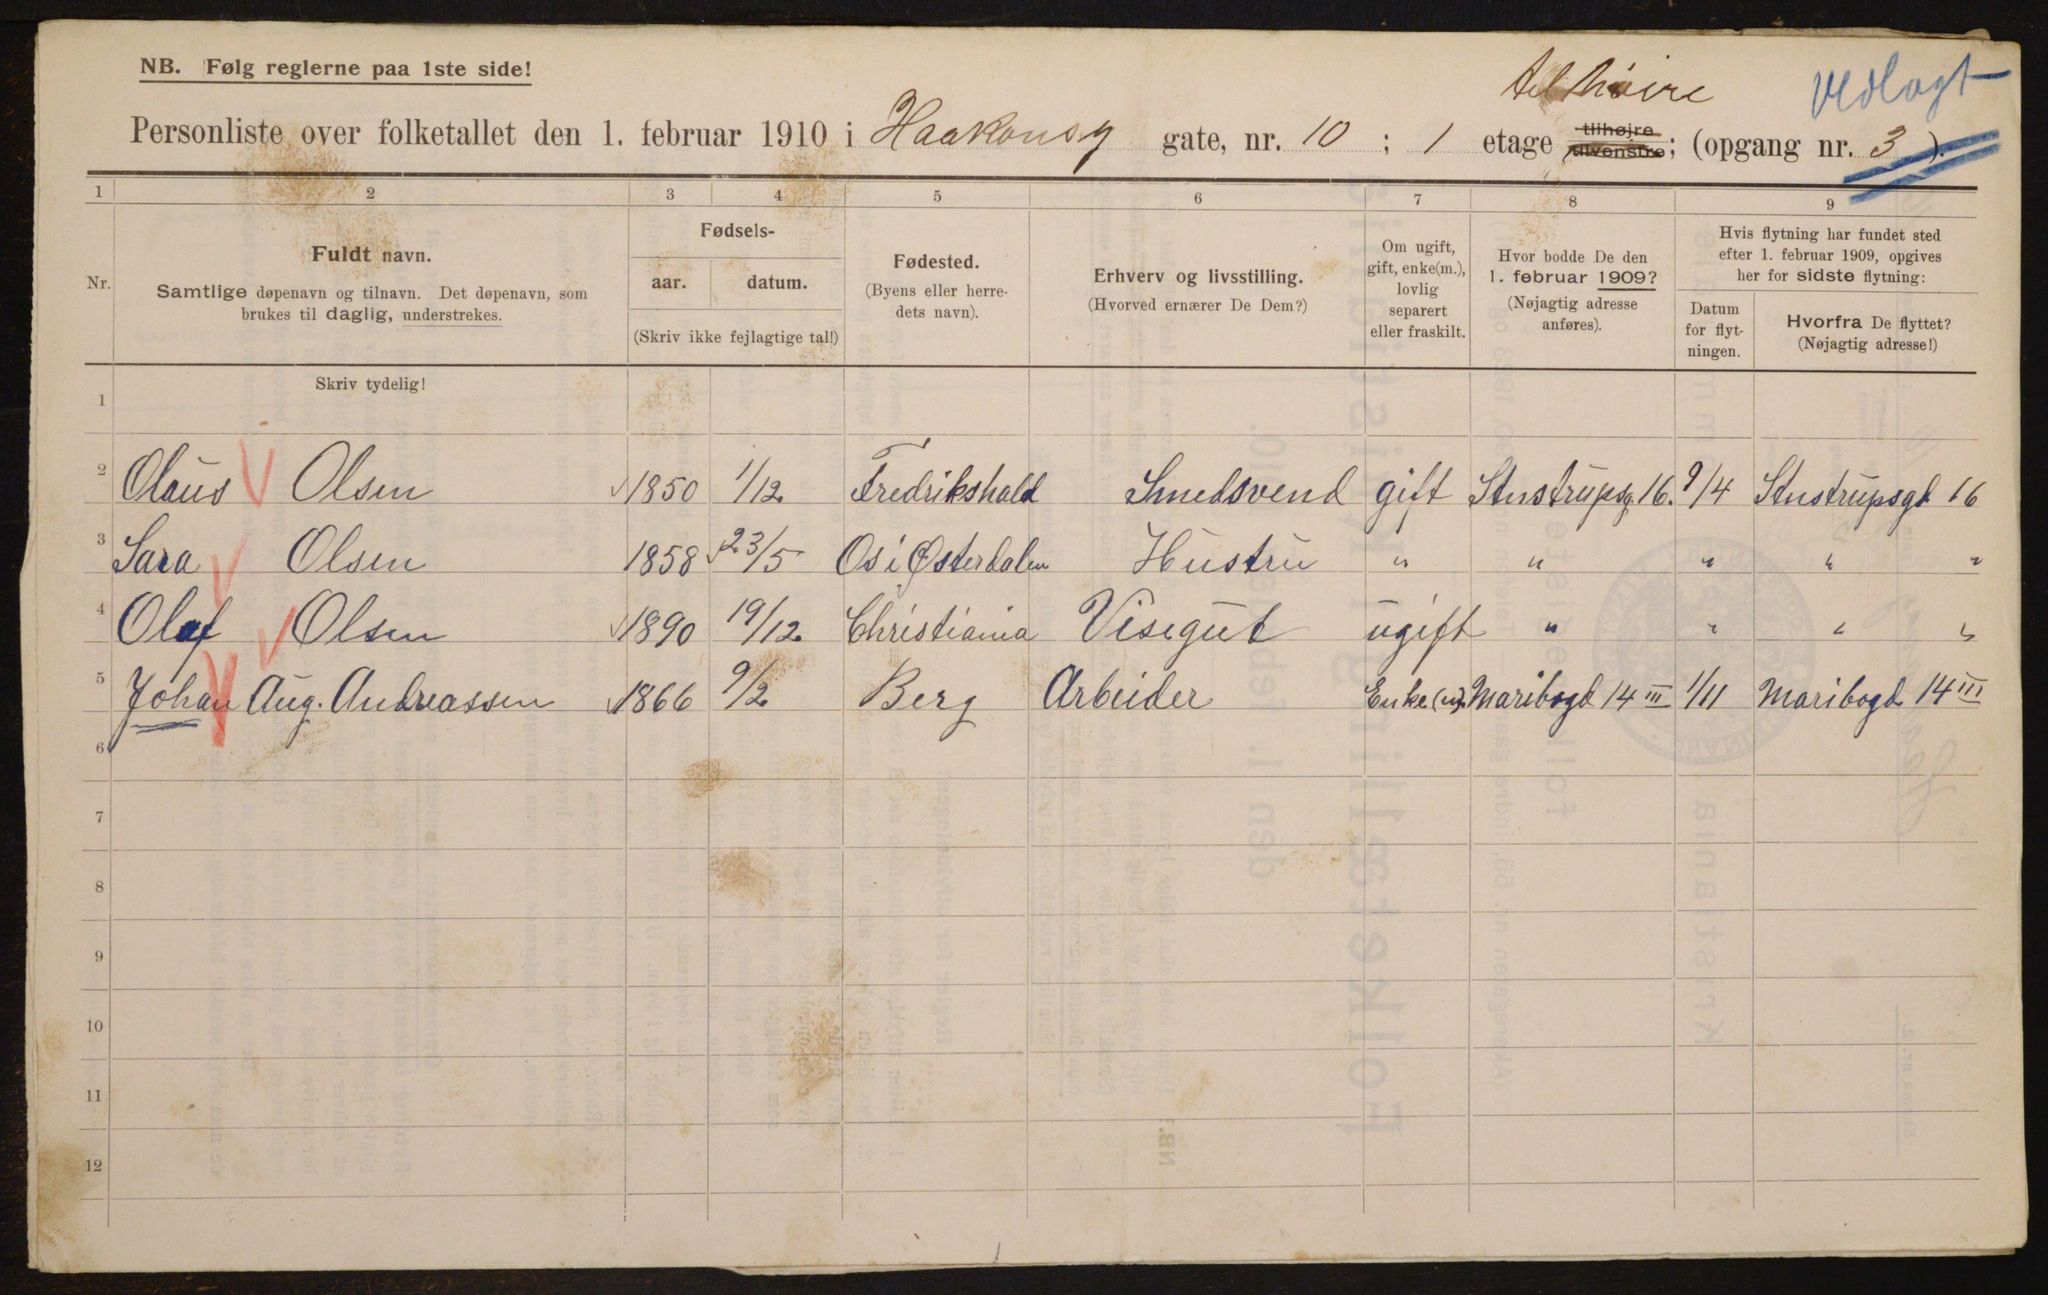 NB. Følg reglerne paa 1ste side!
til høire
Vedlagt
Personliste over folketallet den 1. februar 1910 i Haakonsg gate, nr. 10 ; 1 etage tilhøjre tilvenstre; (opgang nr. 3 ).
1 2 3 4 5 6 7 8 9
Nr.
Fuldt navn.
Samtlige døpenavn og tilnavn. Det døpenavn, som
brukes til daglig, understrekes.
Fødsels-
aar. datum.
(Skriv ikke fejlagtige tal!)
Fødested.
(Byens eller herre-
dets navn).
Erhverv og livsstilling.
(Hvorved ernærer De Dem?)
Om ugift,
gift, enke(m.),
lovlig
separert
eller fraskilt.
Hvor bodde De den
1. februar 1909?
(Nøjagtig adresse
anføres).
Hvis flytning har fundet sted
efter 1. februar 1909, opgives
her for sidste flytning:
Datum
for flyt-
ningen.
Hvorfra De flyttet?
(Nøjagtig adresse!)
Skriv tydelig!
1
2 Olaus Olsen 1850 1/12 Fredrikshald Smedsvend gift Stustrupsg 16. 9/4 Stustrupsgt 16
3 Sara Olsen 1858 23/5 Os i Østerdalen Hustru " " " " "
4 Olaf Olsen 1890 19/12 Christiania Visegut ugift " " " "
5 Johan Aug. Andreassen 1866 9/2 Berg Arbeider Enke(m). Maribogd 14 III 1/11 Maribogd 14 III
6
7
8
9
10
11
12